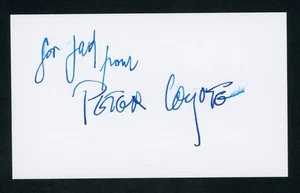 for Jad
from
PETER COYOTE